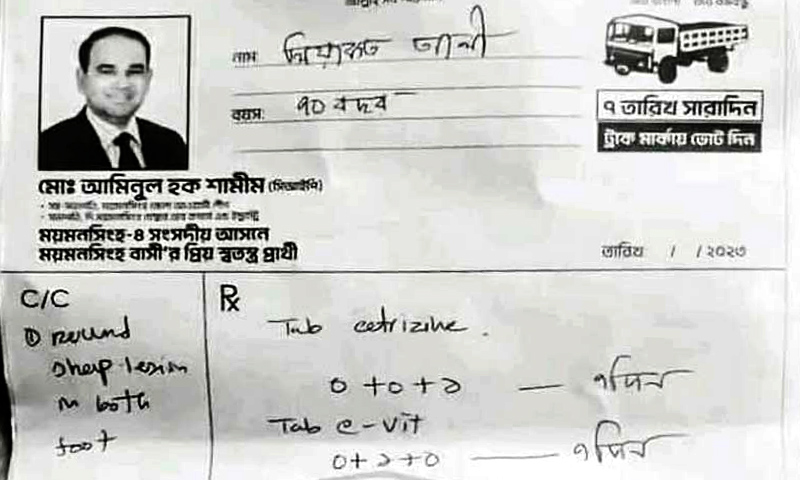 নাম: লিয়াকত আলী
বয়স: ৭০ বছর
৭ তারিখ সারাদিন
ট্রাক মার্কায় ভোট দিন
মোঃ আমিনুল হক শামীম (সিআইপি)
ময়মনসিংহ-৪ সংসদীয় আসনে
ময়মনসিংহ বাসী'র প্রিয় স্বতন্ত্র প্রার্থী
তারিখ / / ২০২৩
C/C
① round
shap lesion
in both
foot
Rx
Tab cetrizine.
0 + 0 + ১ — ৭ দিন
Tab e-vit
0 + ১ + 0 — ৭ দিন